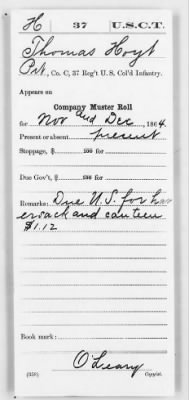 H 37 U.S.C.T.
Thomas Hoyt
Pvt, Co. C, 37 Reg't U. S. Col'd Infantry.
Appears on
Company Muster Roll
for Nov and Dec, 1864.
Present or absent present
Stoppage, $ 100 for
Due Gov't, $ 100 for
Remarks: Due U.S. for hav
ersack and canteen
$1.12
Book mark:
O'Leary
(358) Copyist.